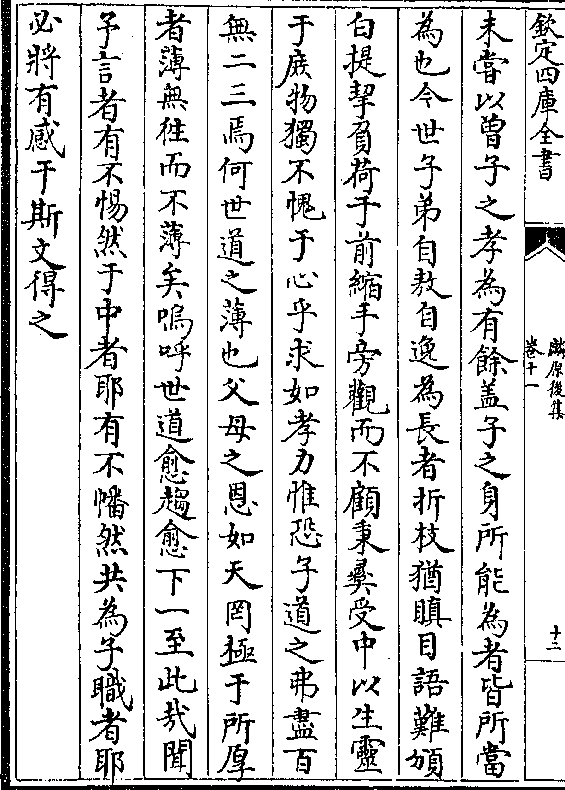 欽定四庫全書
麟原後集
卷十一
十二
未嘗以曾子之孝為有餘盖子之身所能為者皆所當
為也今世子弟自敖自逸為長者折枝猶瞋目語難頒
白提挈負荷于前縮手旁觀而不顧秉彛受中以生靈
于庶物獨不愧于心乎求如孝力惟恐子道之弗盡百
無二三焉何世道之薄也父母之恩如天罔極于所厚
者薄無往而不薄矣嗚呼世道愈趨愈下一至此哉聞
予言者有不惕然于中者耶有不幡然共為子職者耶
必將有感于斯文得之